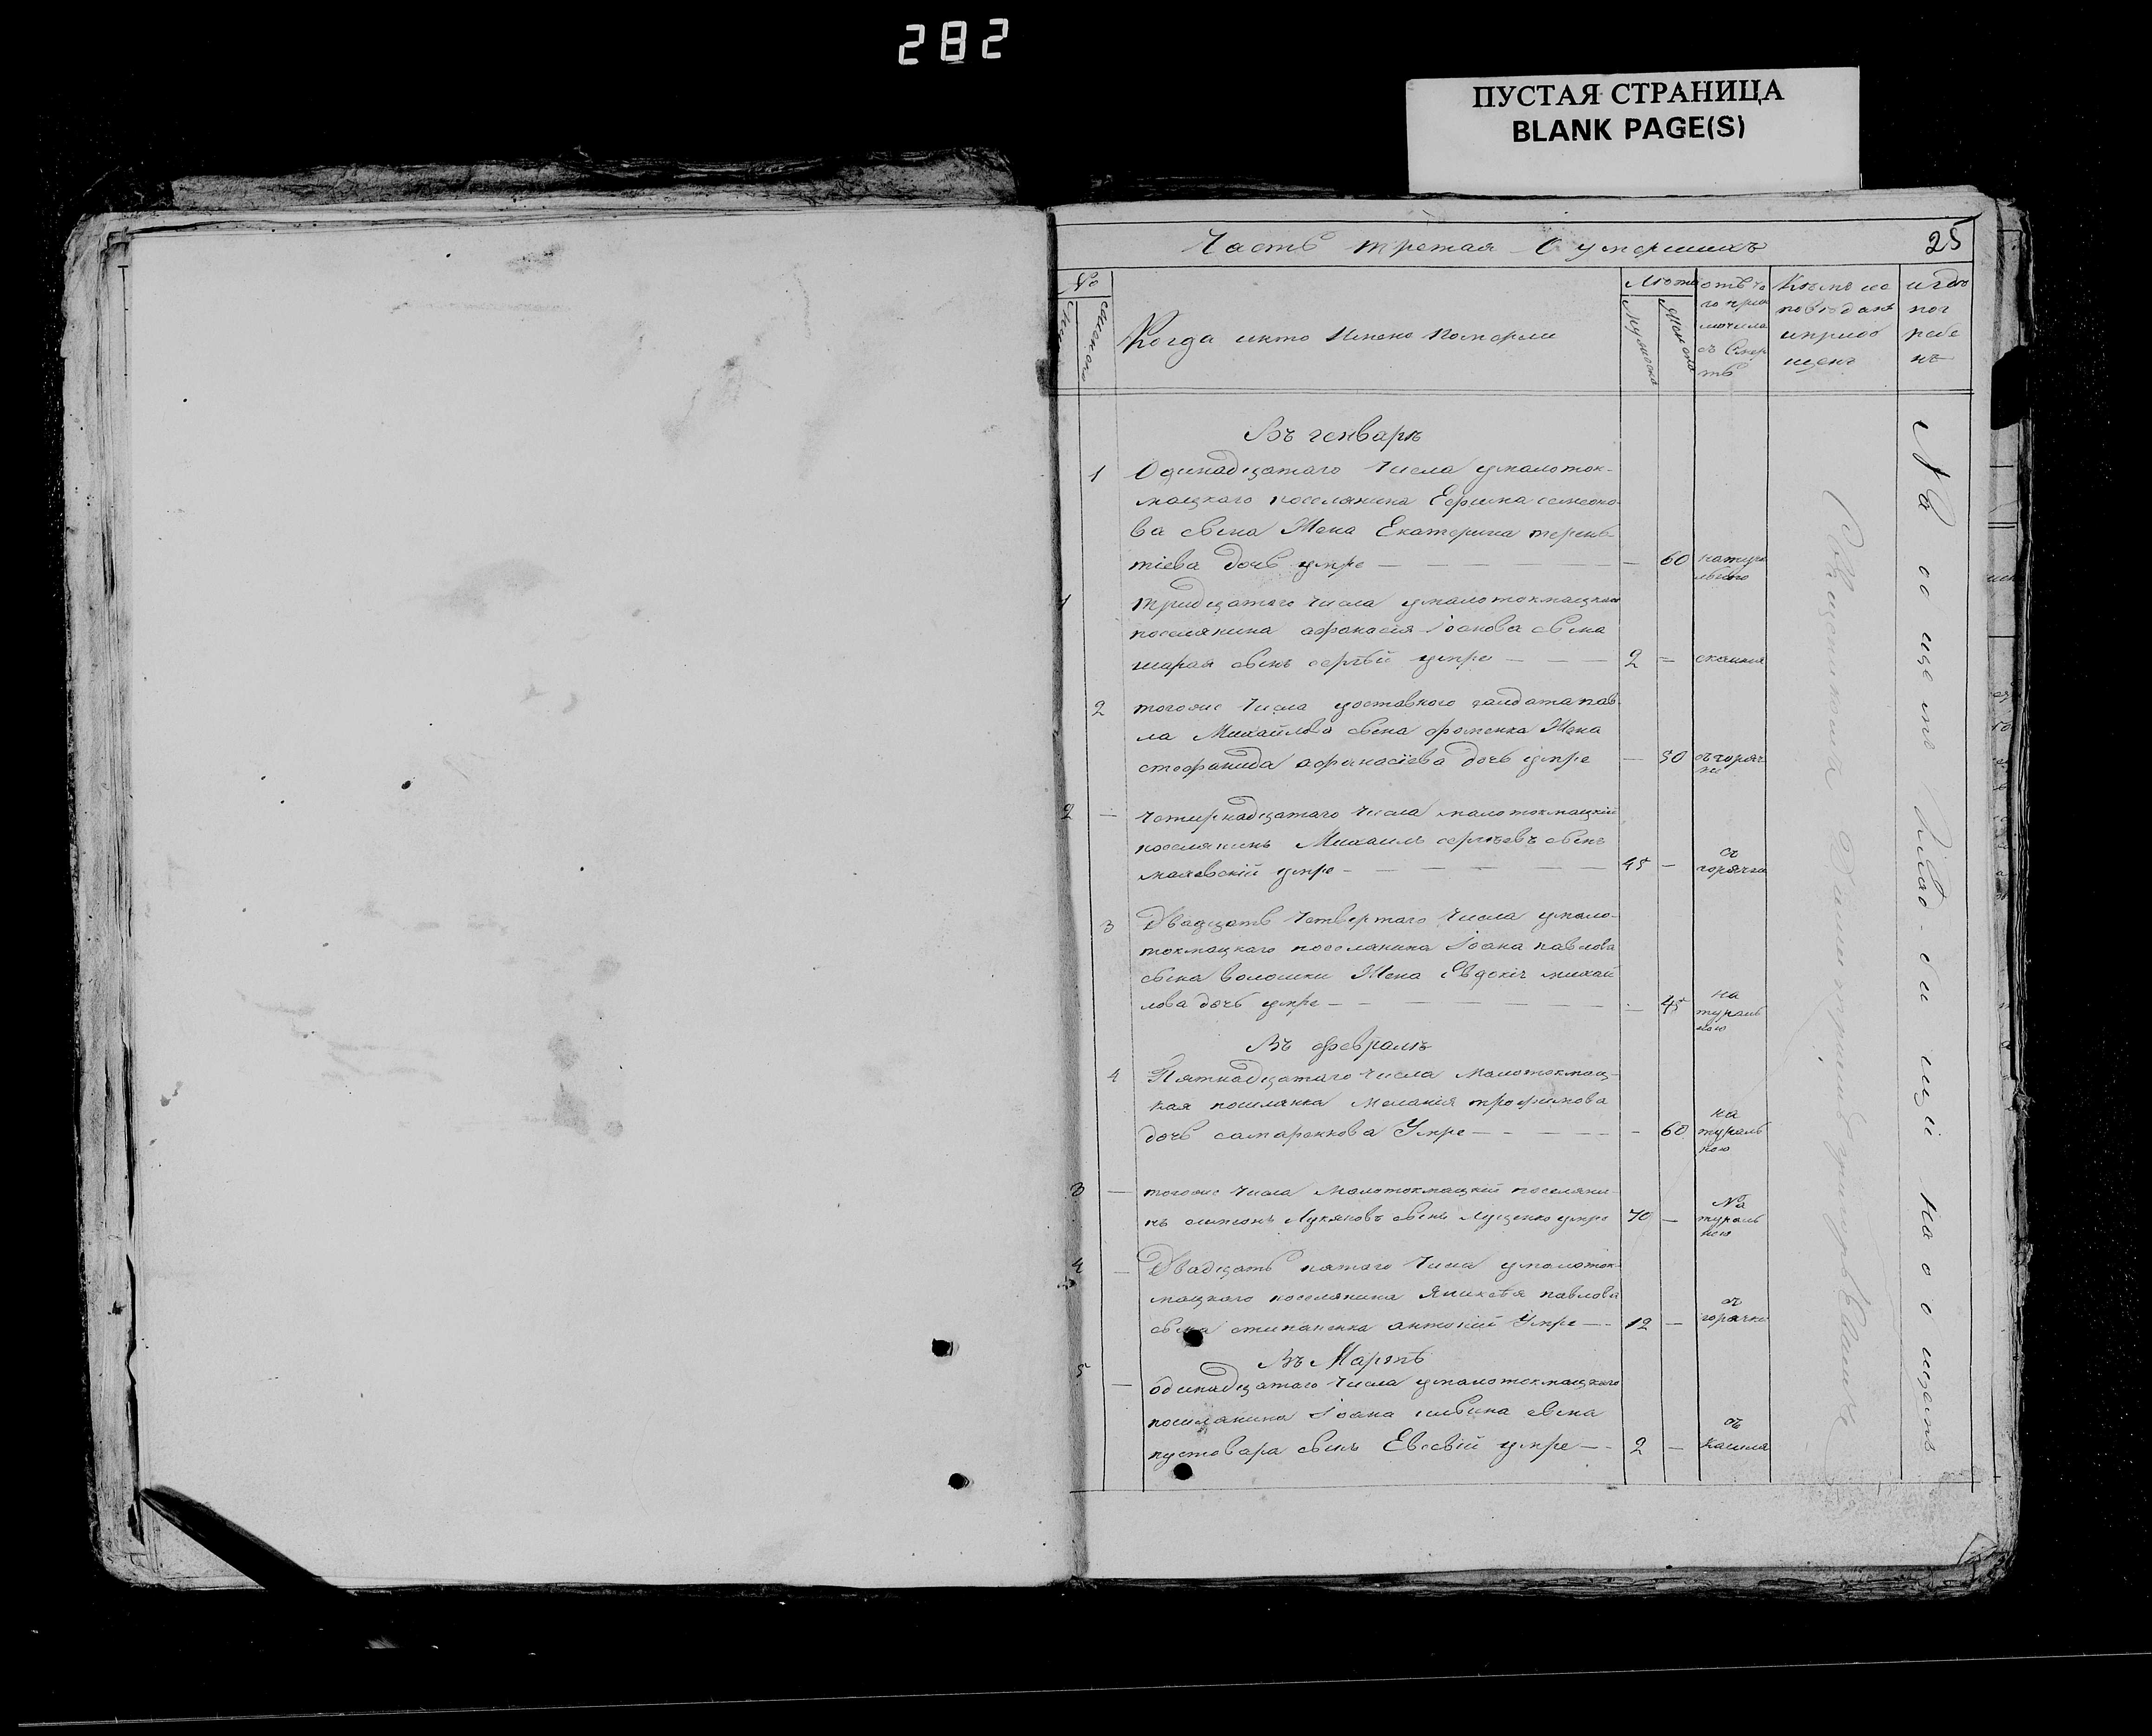 282
ПУСТАЯ СТРАНИЦА
BLANK PAGE(S)
Часть третая О умершихъ
25
№
Когда икто Имено Померли
Лѣта
отъ че
го прик
лючила
съ Смер
ть
Кѣмъ ис
поведанъ
иприоб
щенъ
игдѣ
пог
ребе
нъ
Въ генварѣ
1
Одинадцатаго числа умалоток-
мацкаго поселянина Ефима семеоно-
ва сына Жена Екатерина терень-
тіева дочь умре
— 60
натура
льною
1
тридцатаго числа умалотокмацкаго
поселянина афанасія Іоанова сына
шарая сынъ сергѣй умре
2 —
скашля
2
тогожъ числа уоставного салдата пав
ла Михайлова сына фоменка Жена
стефанида афанасіева дочь умре
— 50
2 —
четирнадцатаго числа малотокмацкій
поселянинъ Михаилъ сергѣевъ сынъ
маяевскій умре
45 —
съ
горячки
3
Двадцать четвертаго числа умало-
токмацкаго поселянина Іоана павлова
сына волошки Жена Евдокія михай
лова дочь умре
— 45
на
тураль
ною
Въ февралѣ
4
Пятнадцатаго числа Малотокмац-
кая поселянка Меланія трофимова
дочь самаренкова Умре
— 60
на
тураль
ною
3 —
тогожъ числа Малотокмацкій поселяни-
нъ симеонъ Лукяновъ сынъ Луценко умре
70 —
На
тураль
ною
4 —
Двадцать пятаго числа умалоток-
мацкаго поселянина павлова
сына степаненка антоній Умре
12 —
съ
горячки
Въ Мартѣ
5 —
одинадцатаго числа умалотокмацкаго
поселянина Іоана сына
пустовара сынъ Евсевій умре
2 —
съ
кашля
Священникомъ Димитріемъ
На общемъ кладбищи